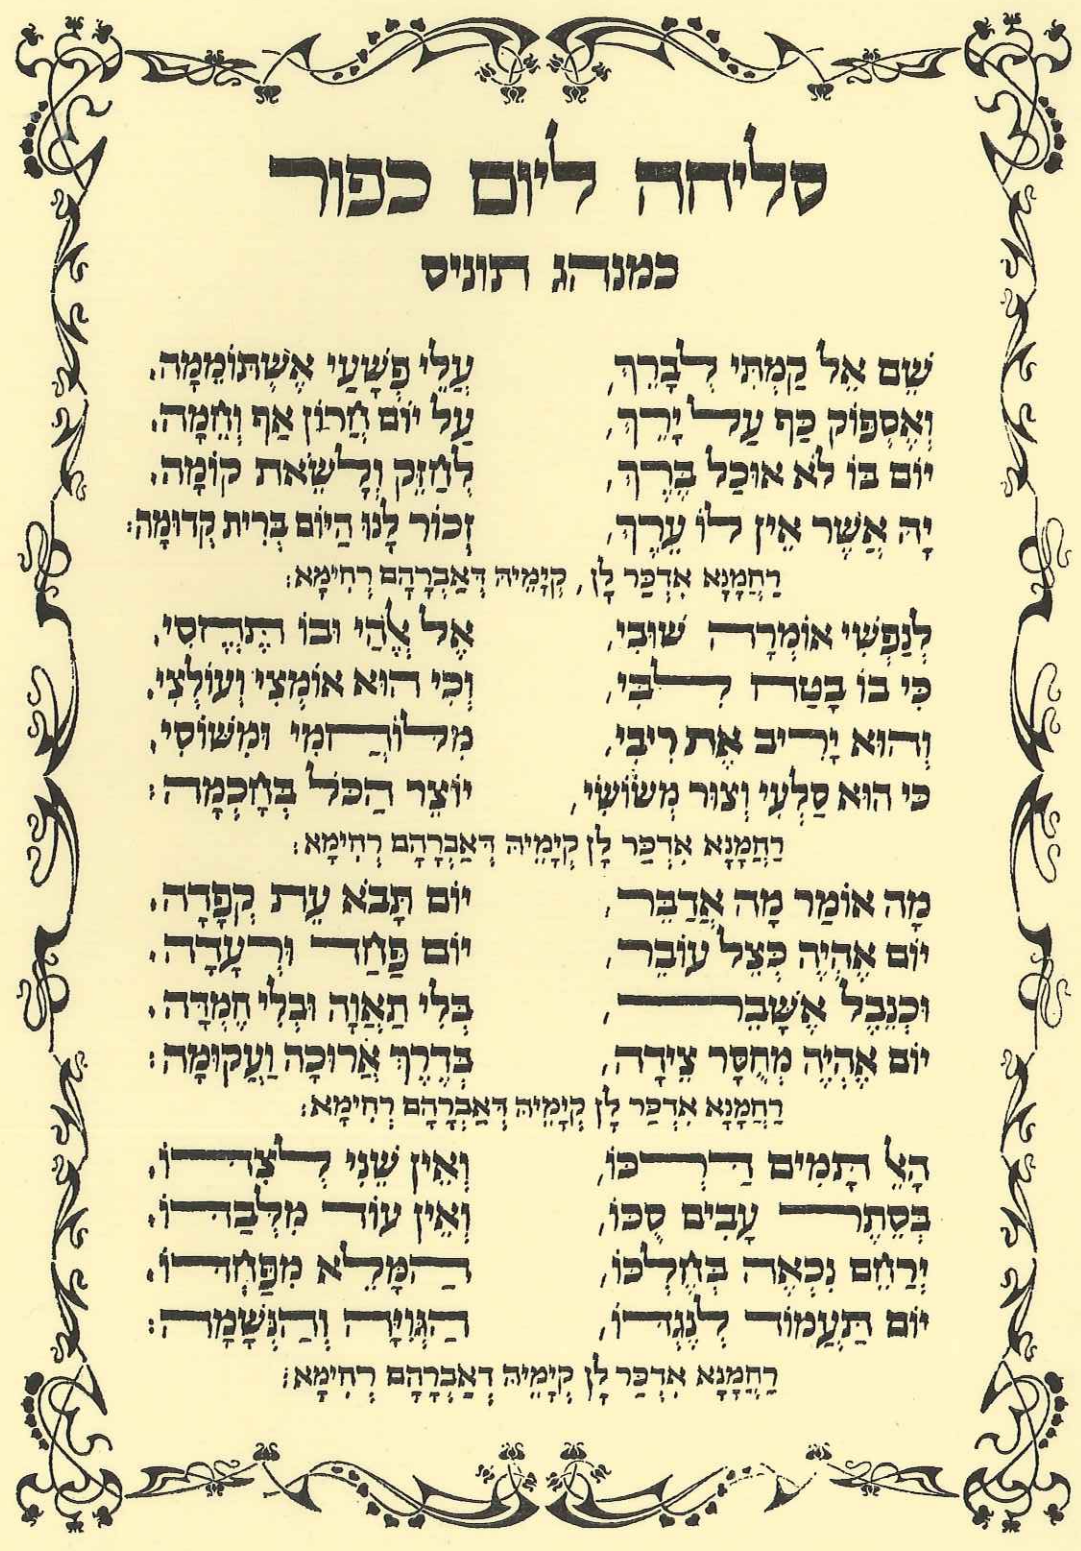 סליחה ליום כפור
כמנהג תוניס
שֵׁם אֵל קַמְתִּי לְבָרֵךְ, עֲלֵי פְשָׁעַי אֶשְׁתּוֹמֵמָה.
וְאֶסְפּוֹק כַּף עַל יָרֵךְ, עַל יוֹם חֲרוֹן אַף וְחֵמָה.
יוֹם בּוֹ לֹא אוּכַל בֶּרֶךְ, לְחַזֵּק וְלָשֵׂאת קוֹמָה.
יָהּ אֲשֶׁר אֵין לוֹ עֵרֶךְ, זְכוֹר לָנוּ הַיּוֹם בְּרִית קְדוּמָה:
רַחֲמָנָא אִדְכַּר לָן, קְיָמֵיהּ דְּאַבְרָהָם רְחִימָא:
לְנַפְשִׁי אוֹמְרָה שׁוּבִי, אֶל אֱלֹהַי וּבוֹ תֶּחֱסִי.
כִּי בוֹ בָּטַח לִבִּי, וְכִי הוּא אוֹמְצִי וְעוֹלְצִי.
וְהוּא יָרִיב אֶת רִיבִי, מִלּוֹחֲמִי וּמִשּׁוֹסִי.
כִּי הוּא סַלְעִי וְצוּר מְשׂוֹשִׂי, יוֹצֵר הַכֹּל בְּחָכְמָה:
רַחֲמָנָא אִדְכַּר לָן קְיָמֵיהּ דְּאַבְרָהָם רְחִימָא:
מָה אוֹמַר מָה אֲדַבֵּר, יוֹם תָּבֹא עֵת קְפָדָה.
יוֹם אֶהְיֶה כְּצֵל עוֹבֵר, יוֹם פַּחַד וּרְעָדָה.
וּכְנֵבֶל אֶשָּׁבֵר, בְּלִי תַאֲוָה וּבְלִי חֶמְדָּה.
יוֹם אֶהְיֶה מְחֻסָּר צֵידָה, בְּדֶרֶךְ אֲרוּכָה וַעֲקוּמָה:
רַחֲמָנָא אִדְכַּר לָן קְיָמֵיהּ דְּאַבְרָהָם רְחִימָא:
הָאֵל תָּמִים דַּרְכּוֹ, וְאֵין שֵׁנִי לְצִדּוֹ.
בְּסֵתֶר עָבִים סֻכּוֹ, וְאֵין עוֹד מִלְּבַדּוֹ.
יְרַחֵם נִכְאֶה בְּחֶלְכּוֹ, הַמָּלֵא מִפַּחְדּוֹ.
יוֹם תַּעֲמוֹד לְנֶגְדּוֹ, הַגְּוִיָּה וְהַנְּשָׁמָה:
רַחֲמָנָא אִדְכַּר לָן קְיָמֵיהּ דְּאַבְרָהָם רְחִימָא: